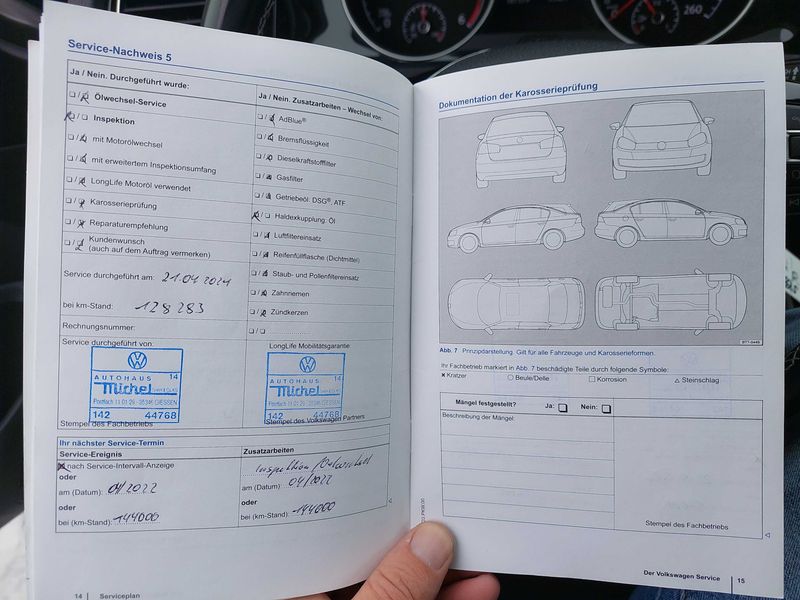 Service-Nachweis 5
Ja / Nein. Durchgeführt wurde:
Ölwechsel-Service
Inspektion
mit Motorölwechsel
mit erweitertem Inspektionsumfang
LongLife Motoröl verwendet
Karosserieprüfung
Reparaturempfehlung
Kundenwunsch
(auch auf dem Auftrag vermerken)
Service durchgeführt am: 21.04.2021
bei km-Stand: 128 283
Rechnungsnummer:
Service durchgeführt von:
AUTOHAUS 14
Michel
Postfach 11 01 29 - 35346 GIESSEN
142 44768
Stempel des Fachbetriebs
Ja / Nein. Zusatzarbeiten – Wechsel von:
AdBlue®
Bremsflüssigkeit
Dieselkraftstofffilter
Gasfilter
Getriebeöl: DSG®, ATF
Haldexkupplung: Öl
Luftfiltereinsatz
Reifenfüllflasche (Dichtmittel)
Staub- und Pollenfiltereinsatz
Zahnriemen
Zündkerzen
LongLife Mobilitätsgarantie:
AUTOHAUS 14
Michel
142 44768
Stempel des Volkswagen Partners
Ihr nächster Service-Termin
Service-Ereignis
nach Service-Intervall-Anzeige
oder
am (Datum): 04/2022
oder
bei (km-Stand): 144000
Zusatzarbeiten
Inspektion/
am (Datum): 04/2022
oder
bei (km-Stand): 144000
14 | Serviceplan
Dokumentation der Karosserieprüfung
Abb. 7 Prinzipdarstellung. Gilt für alle Fahrzeuge und Karosserieformen.
Ihr Fachbetrieb markiert in Abb. 7 beschädigte Teile durch folgende Symbole:
Kratzer
Beule/Delle
Korrosion
Steinschlag
Mängel festgestellt? Ja: Nein:
Beschreibung der Mängel:
Stempel des Fachbetriebs
Der Volkswagen Service | 15
6
260